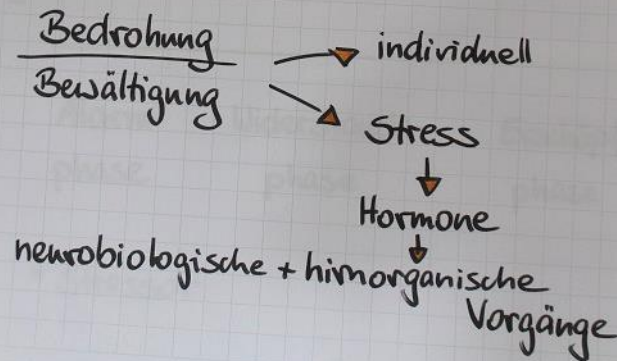 Bedrohung
Bewältigung
individuell
Stress
Hormone
neurobiologische + hirnorganische
Vorgänge